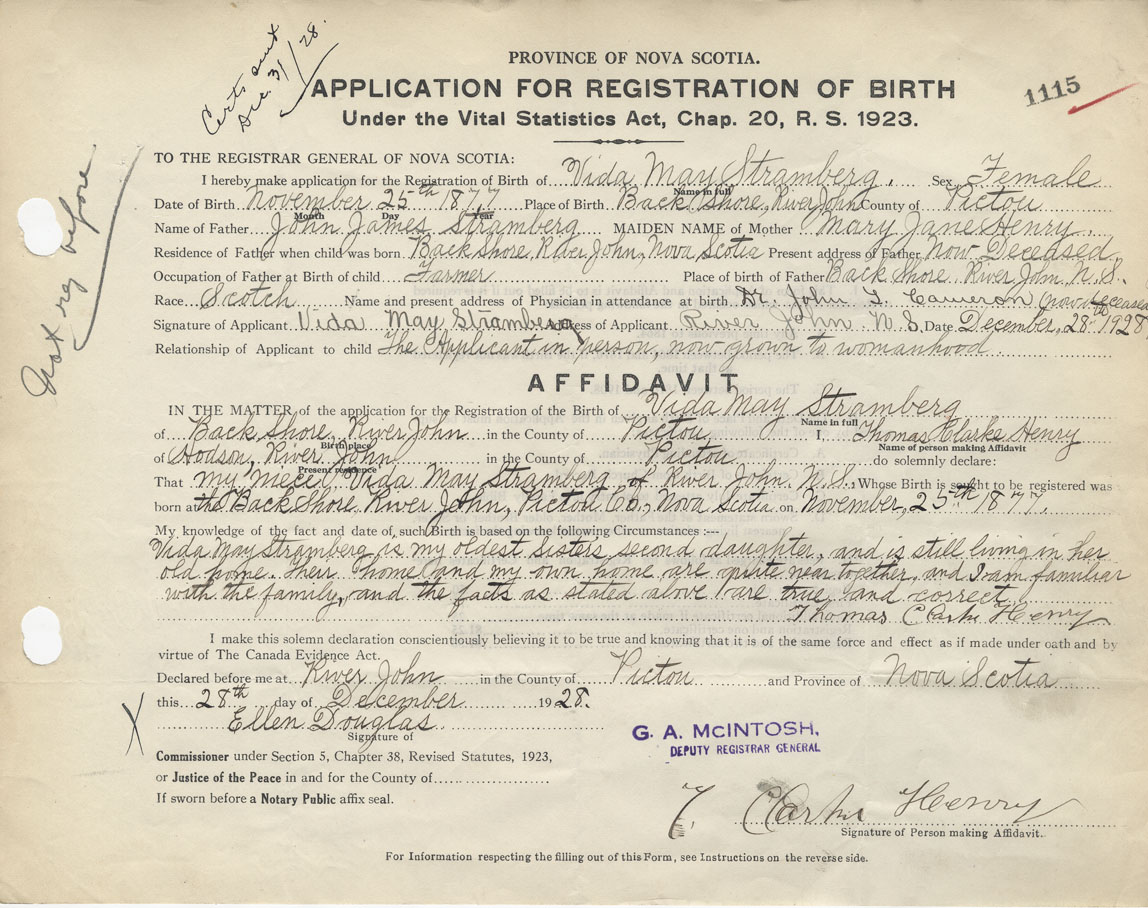 Certs sent
Dec. 31/28.
PROVINCE OF NOVA SCOTIA.
APPLICATION FOR REGISTRATION OF BIRTH
1115
Under the Vital Statistics Act, Chap. 20, R. S. 1923.
Not reg before
TO THE REGISTRAR GENERAL OF NOVA SCOTIA:
I hereby make application for the Registration of Birth of Vida May Stramberg. Sex Female
Name in full
Date of Birth November 25th 1877 Place of Birth Back Shore, River John County of Pictou
Month Day Year
Name of Father John James Stramberg MAIDEN NAME of Mother Mary Jane Henry.
Residence of Father when child was born. Back Shore, River John, Nova Scotia Present address of Father Now Deceased
Occupation of Father at Birth of child Farmer Place of birth of Father Back Shore River John N. S.
Race Scotch Name and present address of Physician in attendance at birth Dr. John I. Cameron (now deceased
Signature of Applicant Vida May Stramberg Address of Applicant River John N. S. Date December, 28th 1928
Relationship of Applicant to child The Applicant in person, now grown to womanhood
AFFIDAVIT
IN THE MATTER of the application for the Registration of the Birth of Vida May Stramberg
Name in full
of Back Shore, River John in the County of Pictou I, Thomas Clarke Henry
Birth place Name of person making Affidavit
of Hodson, River John in the County of Pictou do solemnly declare:
Present residence
That my niece Vida May Stramberg, of River John. N. S. Whose Birth is sought to be registered was
born at the Back Shore River John, Pictou Co., Nova Scotia on November, 25th 1877.
My knowledge of the fact and date of such Birth is based on the following Circumstances :---
Vida May Stramberg is my oldest sisters second daughter, and is still living in her
old home. Their home and my own home are quite near together, and I am familiar
with the family, and the facts as stated above are true, and correct
Thomas Clarke Henry
I make this solemn declaration conscientiously believing it to be true and knowing that it is of the same force and effect as if made under oath and by
virtue of The Canada Evidence Act.
Declared before me at River John in the County of Pictou and Province of Nova Scotia
this 28th day of December 1928.
X Ellen Douglas
Signature of
G. A. McINTOSH,
DEPUTY REGISTRAR GENERAL
Commissioner under Section 5, Chapter 38, Revised Statutes, 1923,
or Justice of the Peace in and for the County of
If sworn before a Notary Public affix seal.
T. Clarke Henry
Signature of Person making Affidavit.
For Information respecting the filling out of this Form, see Instructions on the reverse side.